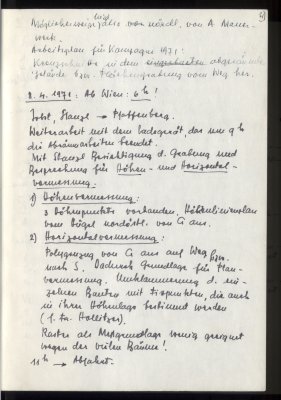 Möglicherweise jetzt von nördl. von A. Mauer-
werk.
Arbeitsplan für Kampagne 1971:
Kreuzschnitte in dem abgeräumten
Gelände bzw. Flächengrabung vom Weg her.
8. 4. 1971: Ab Wien: 6 h!
Jobst, Stanzl → Pfaffenberg.
Weiterarbeit mit dem Ladegerät, das um 9 h
die Abräumarbeiten beendet.
Mit Stanzl Besichtigung d. Grabung und
Besprechung für Höhen- und Horizontal-
vermessung.
1) Höhenvermessung:
3 Höhenpunkte vorhanden, Höhenlinienplan
vom Hügel nordöstl. von G aus.
2) Horizontalvermessung:
Polygonzug von G aus auf Weg bzw.
nach S. Dadurch Grundlage für Plan-
vermessung. Umklammerung d. ein-
zelnen Bauten mit Fixpunkten, die auch
in ihrer Höhenlage bestimmt werden
(s. Fa. Hollitzer).
Raster als Meßgrundlage wenig geeignet
wegen der vielen Bäume!
11 h → Abfahrt.